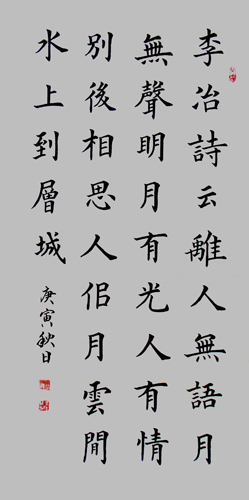 李冶詩云離人無語月
無聲明月有光人有情
別後相思人佀月雲間
水上到層城
庚寅秋日